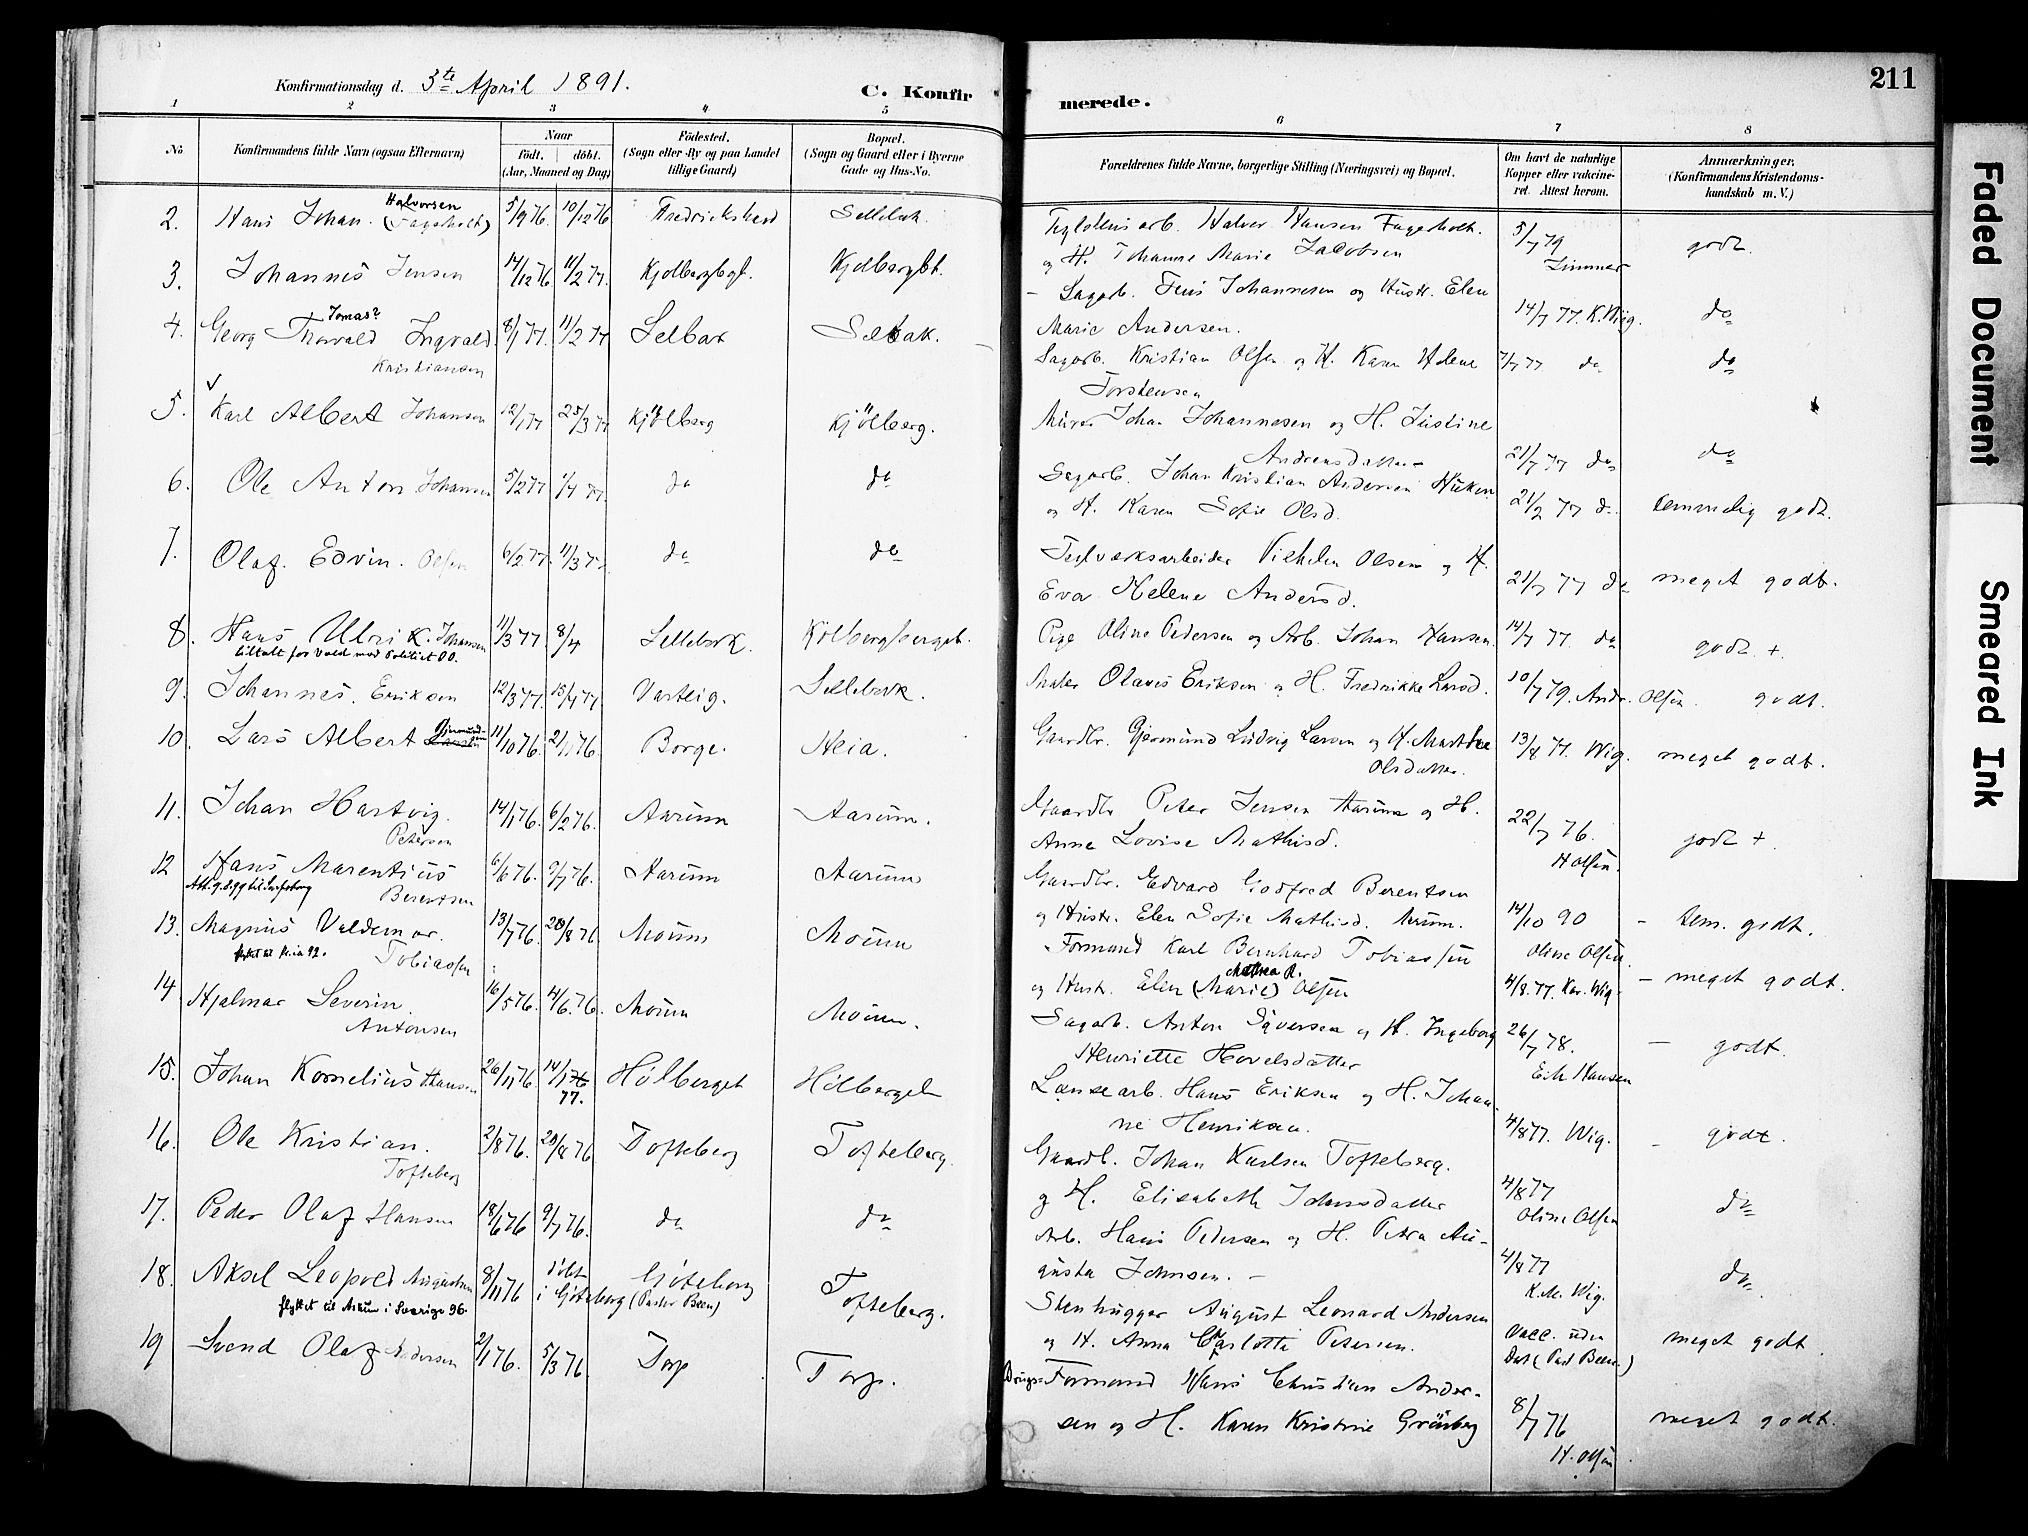 211
Konfirmationsdag d. 3te April 1891.
C. Konfirmerede.
1 2 3 4 5 6 7 8
No
Konfirmandens fulde Navn (ogsaa Efternavn)
Naar
født. | døbt.
(Aar, Maaned og Dag)
Fødested.
(Sogn eller By og paa Landet
tillige Gaard)
Bopæl.
(Sogn og Gaard eller i Byerne
Gade og Hus-No.
Forældrenes fulde Navne, borgerlige Stilling (Næringsvei) og Bopæl.
Om havt de naturlige
Kopper eller vakcine-
ret. Attest herom.
Anmærkninger.
(Konfirmandens Kristendoms-
kundskab m. V.)
2. Hans Johan Halvorsen (Fagerholt) 5/9 76 10/12 76 Fredrikshald Sellebak
Halvor Hansen Fagerholt
og H. Johanne Marie Jacobsen 5/7 79 godt.
3. Johannes Jensen 14/12 76 11/2 77. Kjølbergbgt. Kjølbergbt.
Sagarb. Jens Johannesen og Hustr. Elen
Marie Andersen. 14/7 77. K. Wig. do
4. Georg Thorvald Tomas? Ingvald 8/1 77. 11/2 77 Selbak Selbak.
Kristiansen
Sagarb. Kristian Olsen og H. Karen Helene
Torstensen 7/7 77 do do
5. Karl Albert Johansen 12/1 77 25/3 77 Kjölberg Kjölberg.
Murer Johan Johannesen og H. Justine
Andreasdatter 21/7 77 do do
6. Ole Anton Johansen 5/2 77 1/4 77. do do
Sagarb. Johan Kristian Andersen
og H. Karen Sofie Olsd. 21/2 77 do temmelig godt.
7. Olaf Edvin. Olsen 6/2 77. 11/3 77. do do
Teglværksarbeider Vilhelm Olsen og H.
Eva Helene Andersd. 21/7 77 do meget godt.
8. Hans Ulrik. Johansen 11/3 77 8/4 Sellebak. Kølbergberget.
tiltalt for Vold mod Politiet 00.
Pige Oline Pedersen og Arb. Johan Hansen. 14/7 77. do godt. +
9. Johannes. Eriksen 12/3 77. 15/4 77. Varteig. Sellebak.
Maler Olavis Eriksen og H. Fredrikke Larsd. 10/7 79. Andr. Olsen. godt.
10. Lars Albert Gjermundsen 11/10 76. 2/11 76. Borge. Heia.
Gaardbr. Gjermund Ludvig Larsen og H. Marthe
Olsdatter. 13/8 77. Wig. meget godt.
11. Johan Hartvig. 14/1 76. 6/2 76. Aarum Aarum.
Petersen
Gaardbr Peter Jensen Aarum og H.
Anna Lovise Mathisd. 22/7 76. H Olsen. godt +.
12 Hans Marentius 6/6 76. 9/7 76. Aarum Aarum
Berentsen
Gaardbr. Edvard Godfred Berentsen
og Hustr. Elen Sofie Mathisd. Aarum. 14/10 90 Oline Olsen. - tem. godt.
13. Magnus Valdemar. 13/7 76. 20/8 76 Moum Moum
Tobiassen
Formand Karl Bernhard Tobiassen
og Hustr. Elen (Marie) Mathea R. Olsen 4/8. 77. Kar. Wig. - meget godt.
14 Hjalmar Severin. 16/5 76. 4/6. 76. Moum Moum.
Antonsen
Sagarb. Anton Syversen og H. Ingeborg
Henriette Hovelsdatter 26/7 78. Er. Hansen - godt.
15. Johan Kornelius Hansen 26/11 76. 14/1 76 77. Hølberget Hølberget
Lænsearb. Hans Eriksen og H. Johan-
ne Henriksen. 4/8 77. Wig. - godt.
16. Ole Kristian. 2/8 76. 20/8 76 Tofteberg Tofteberg.
Tofteberg
Gaardb. Johan Karlsen Tofteberg.
og H. Elisabeth Johnsdatter 4/8 77 Oline Olsen do
17. Peder Olaf Hansen 18/6 76 9/7 76. do do
Arb. Hans Pedersen og H. Petra Au-
gusta Johnsen. - 4/8 77 K. M. Wig. do.
18. Aksel Leopold Augustsen 8/11 76 døbt i Gøteborg Gøteborg (Pastor Been) Tofteberg.
flyttet til Askum i Sverige 96.
Stenhugger August Leonard Andersen
og H. Anna Charlotta Petersen. Vacc. uden Dat (Past Been.) meget godt.
19 Svend Olaf Andersen 2/1 76. 5/3 76. Torp Torp.
Brugs-Formand Hans Christian Ander-
sen og H. Karen Kristine Grönberg 8/7 76 H. Olsen meget godt.
Faded Document
Smeared Ink